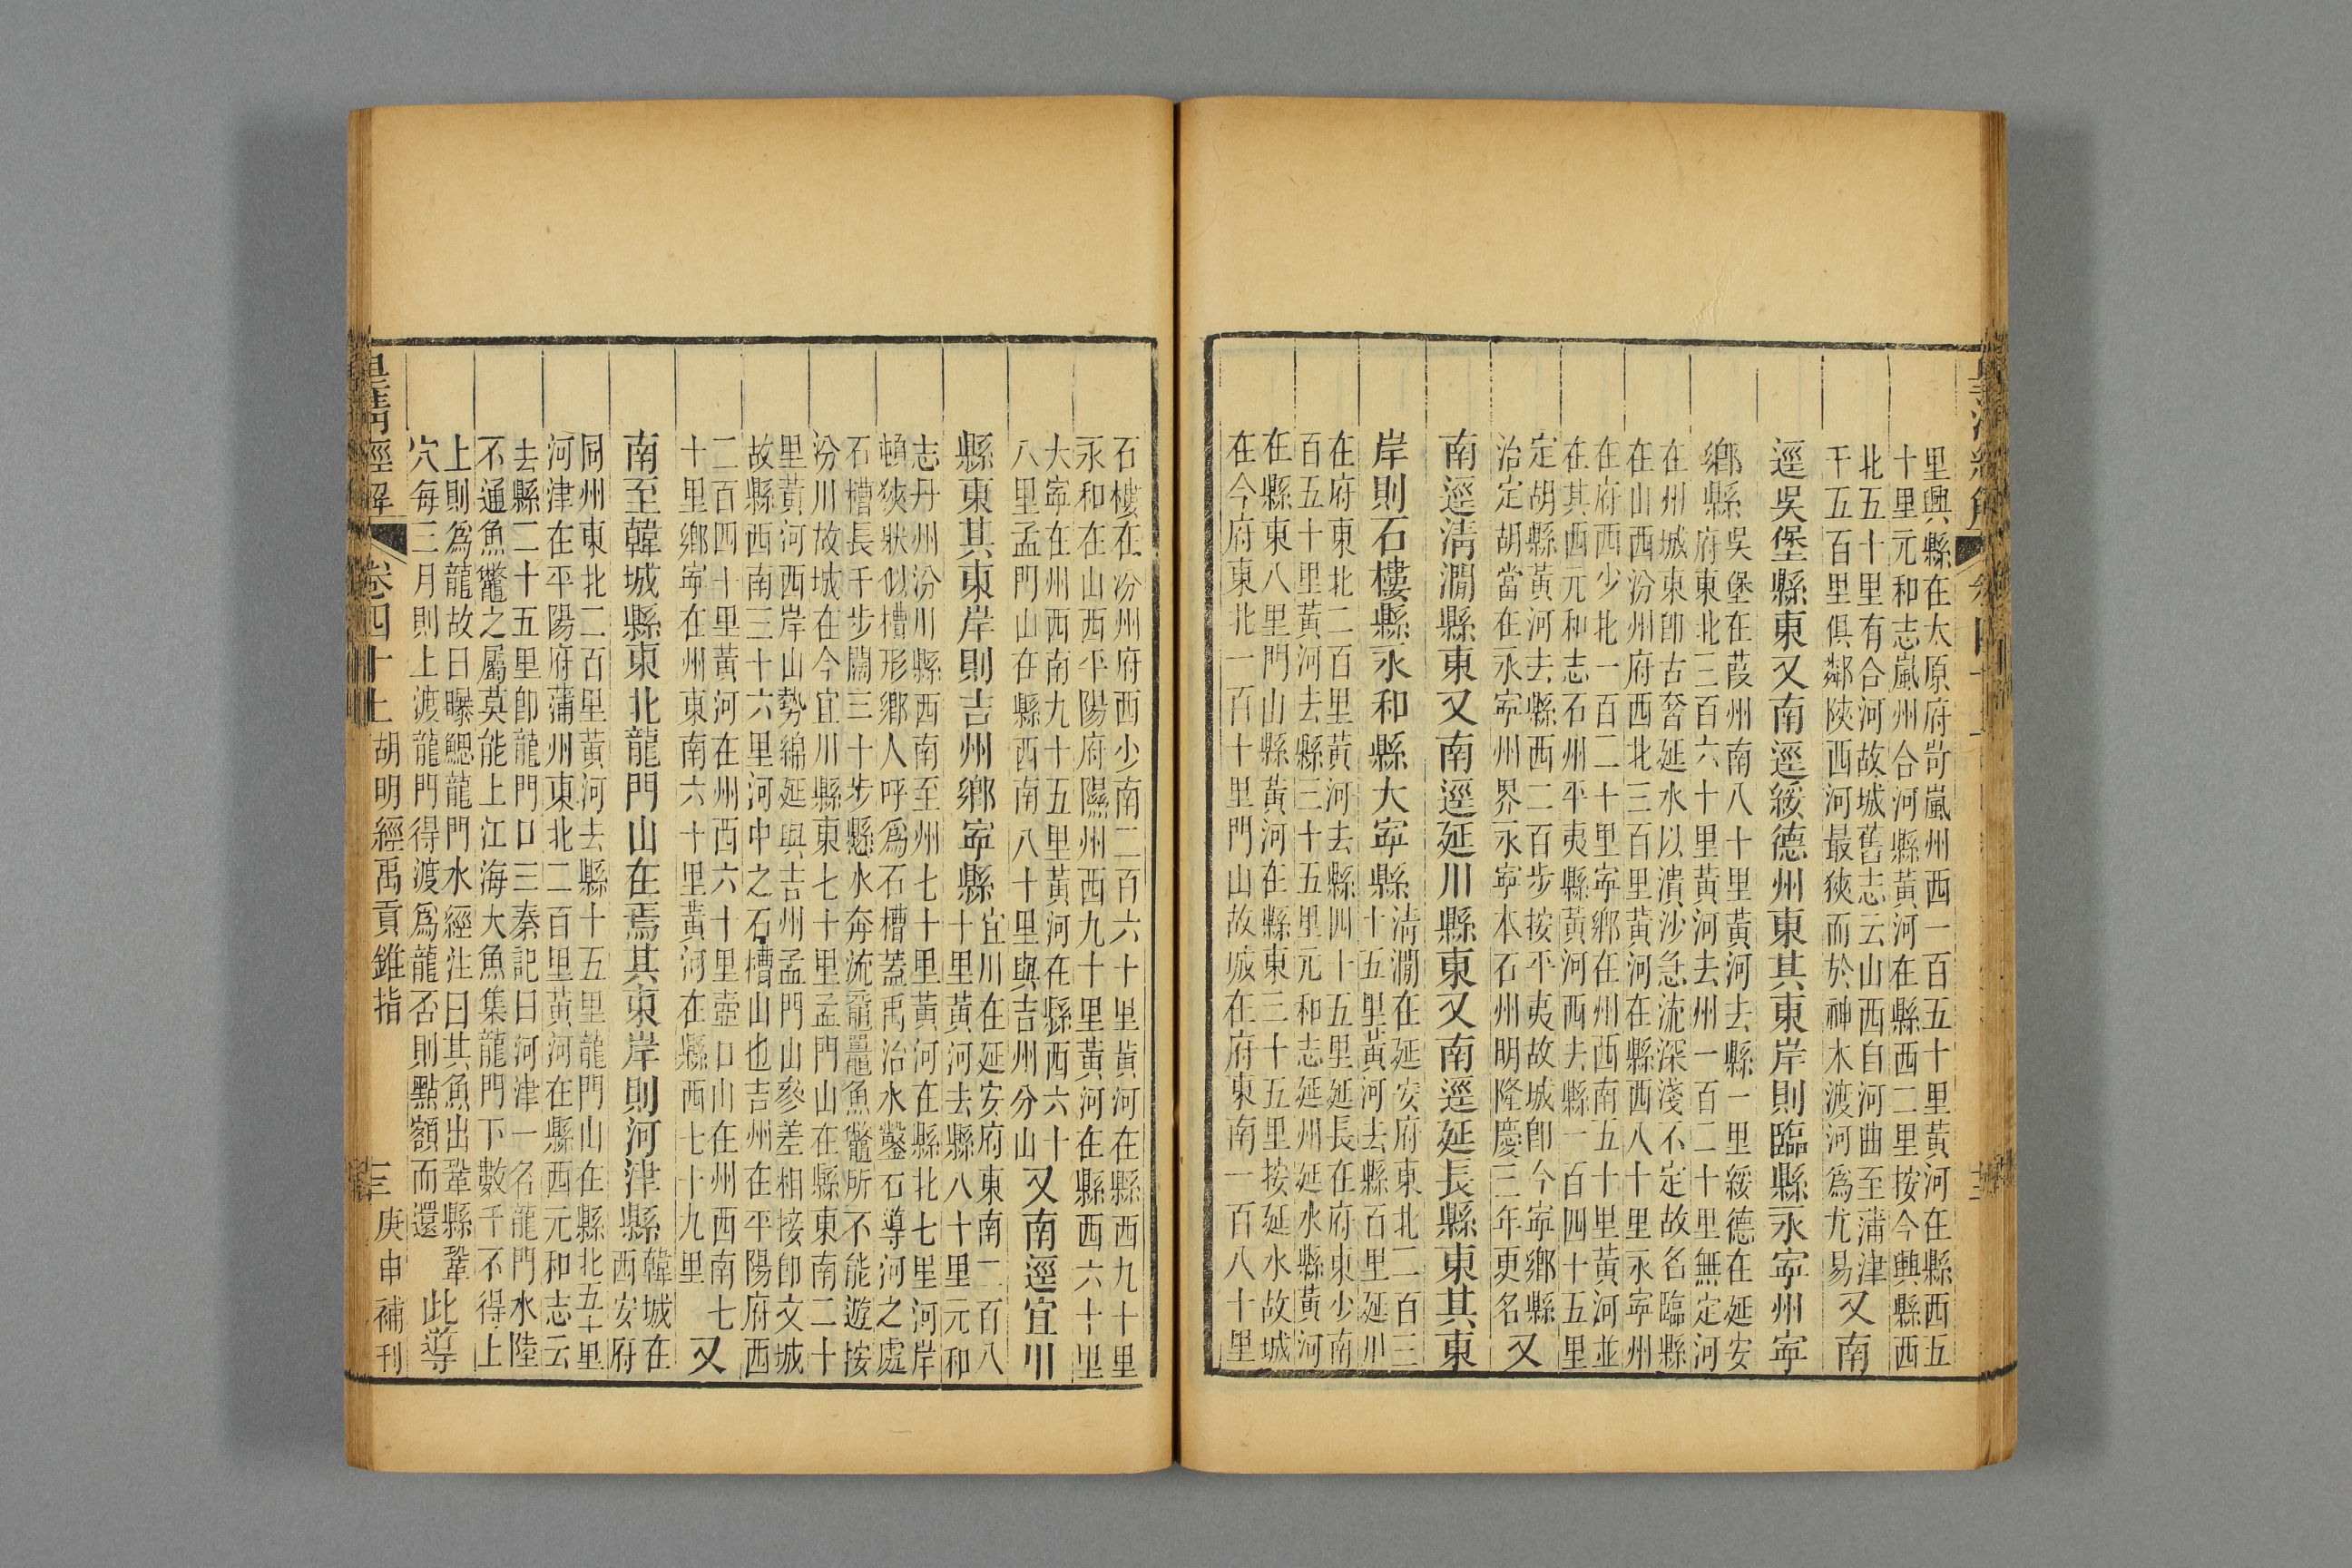 里興縣在太原府岢嵐州西一百五十里黃河在縣西五
十里元和志嵐州合河縣黃河在縣西二里按今興縣西
北五十里有合河故城舊志云山西自河曲至蒲津
千五百里俱鄰陝西河最狹而於神木渡河爲尤易又南
逕吳堡縣東又南逕綏德州東其東岸則臨縣永寧州寧
鄉縣吳堡在葭州南八十里黃河去縣一里綏德在延安
府東北三百六十里黃河去州一百二十里無定河
在州城東卽古奢延水以潰沙急流深淺不定故名臨縣
在山西汾州府西北三百里黃河在縣西八十里永寧州
在府西少北一百二十里寧鄉在州西南五十里黃河並
在其西元和志石州平夷縣黃河西去縣一百四十五里
定胡縣黃河去縣西二百步按平夷故城卽今寧鄉縣
治定胡當在永寧州界永寧本石州明隆慶三年更名又
南逕淸澗縣東又南逕延川縣東又南逕延長縣東其東
岸則石樓縣永和縣大寧縣淸澗在延安府東北二百三
十五里黃河去縣百里延川
在府東北二百里黃河去縣四十五里延長在府東少南
百五十里黃河去縣三十五里元和志延州延水縣黃河
在縣東八里門山縣黃河在縣東三十五里按延水故城
在今府東北一百十里門山故城在府東南一百八十里
石樓在汾州府西少南二百六十里黃河在縣西九十里
永和在山西平陽府隰州西九十里黃河在縣西六十里
大寧在州西南九十五里黃河在縣西六十
八里孟門山在縣西南八十里與吉州分山又南逕宜川
縣東其東岸則吉州鄉寧縣宜川在延安府東南二百八
十里黃河去縣八十里元和
志丹州汾川縣西南至州七十里黃河在縣北七里河岸
頓狹狀似槽形鄉人呼爲石槽蓋禹治水鑿石導河之處
石槽長千步闊三十步懸水奔流黿鼉魚鼈所不能遊按
汾川故城在今宜川縣東七十里孟門山在縣東南二十
里黃河西岸山勢綿延與吉州孟門山參差相接卽文城
故縣西南三十六里河中之石槽山也吉州在平陽府西
二百四十里黃河在州西六十里壺口山在州西南七
十里鄉寧在州東南六十里黃河在縣西七十九里又
南至韓城縣東北龍門山在焉其東岸則河津縣韓城在
西安府
同州東北二百里黃河去縣十五里龍門山在縣北五十里
河津在平陽府蒲州東北二百里黃河在縣西元和志云
去縣二十五里卽龍門口三秦記曰河津一名龍門水陸
不通魚鼈之屬莫能上江海大魚集龍門下數千不得上
上則爲龍故曰曝鰓龍門水經注曰其魚出鞏縣鞏
穴每三月則上渡龍門得渡爲龍否則點額而還此導
皇淸經解 卷四十上 胡明經禹貢錐指 三 庚申補刊